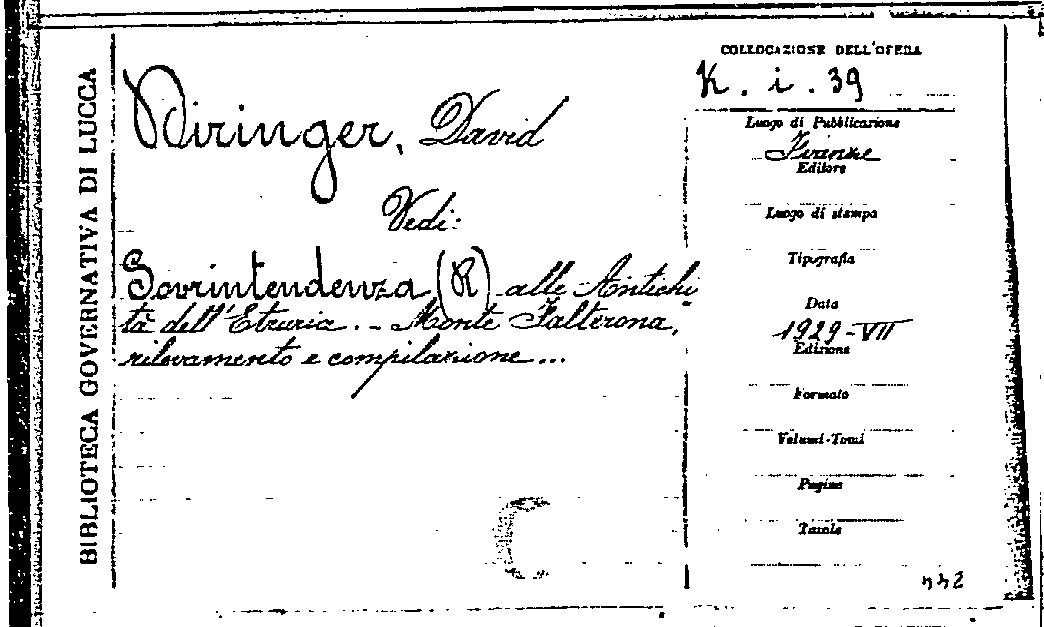 BIBLIOTECA GOVERNATIVA DI LUCCA
Diringer, David
Vedi:
Sovrintendenza (R) alle Antichi
tà dell'Etruria. - Monte Falterona,
rilevamento e compilazione...
COLLOCAZIONE DELL'OPERA
K. i. 39
Luogo di Pubblicazione
Firenze
Editore
Luogo di stampa
Tipografia
Data
1929-VII
Edizione
Formato
Volumi-Tomi
Pagine
Tavole